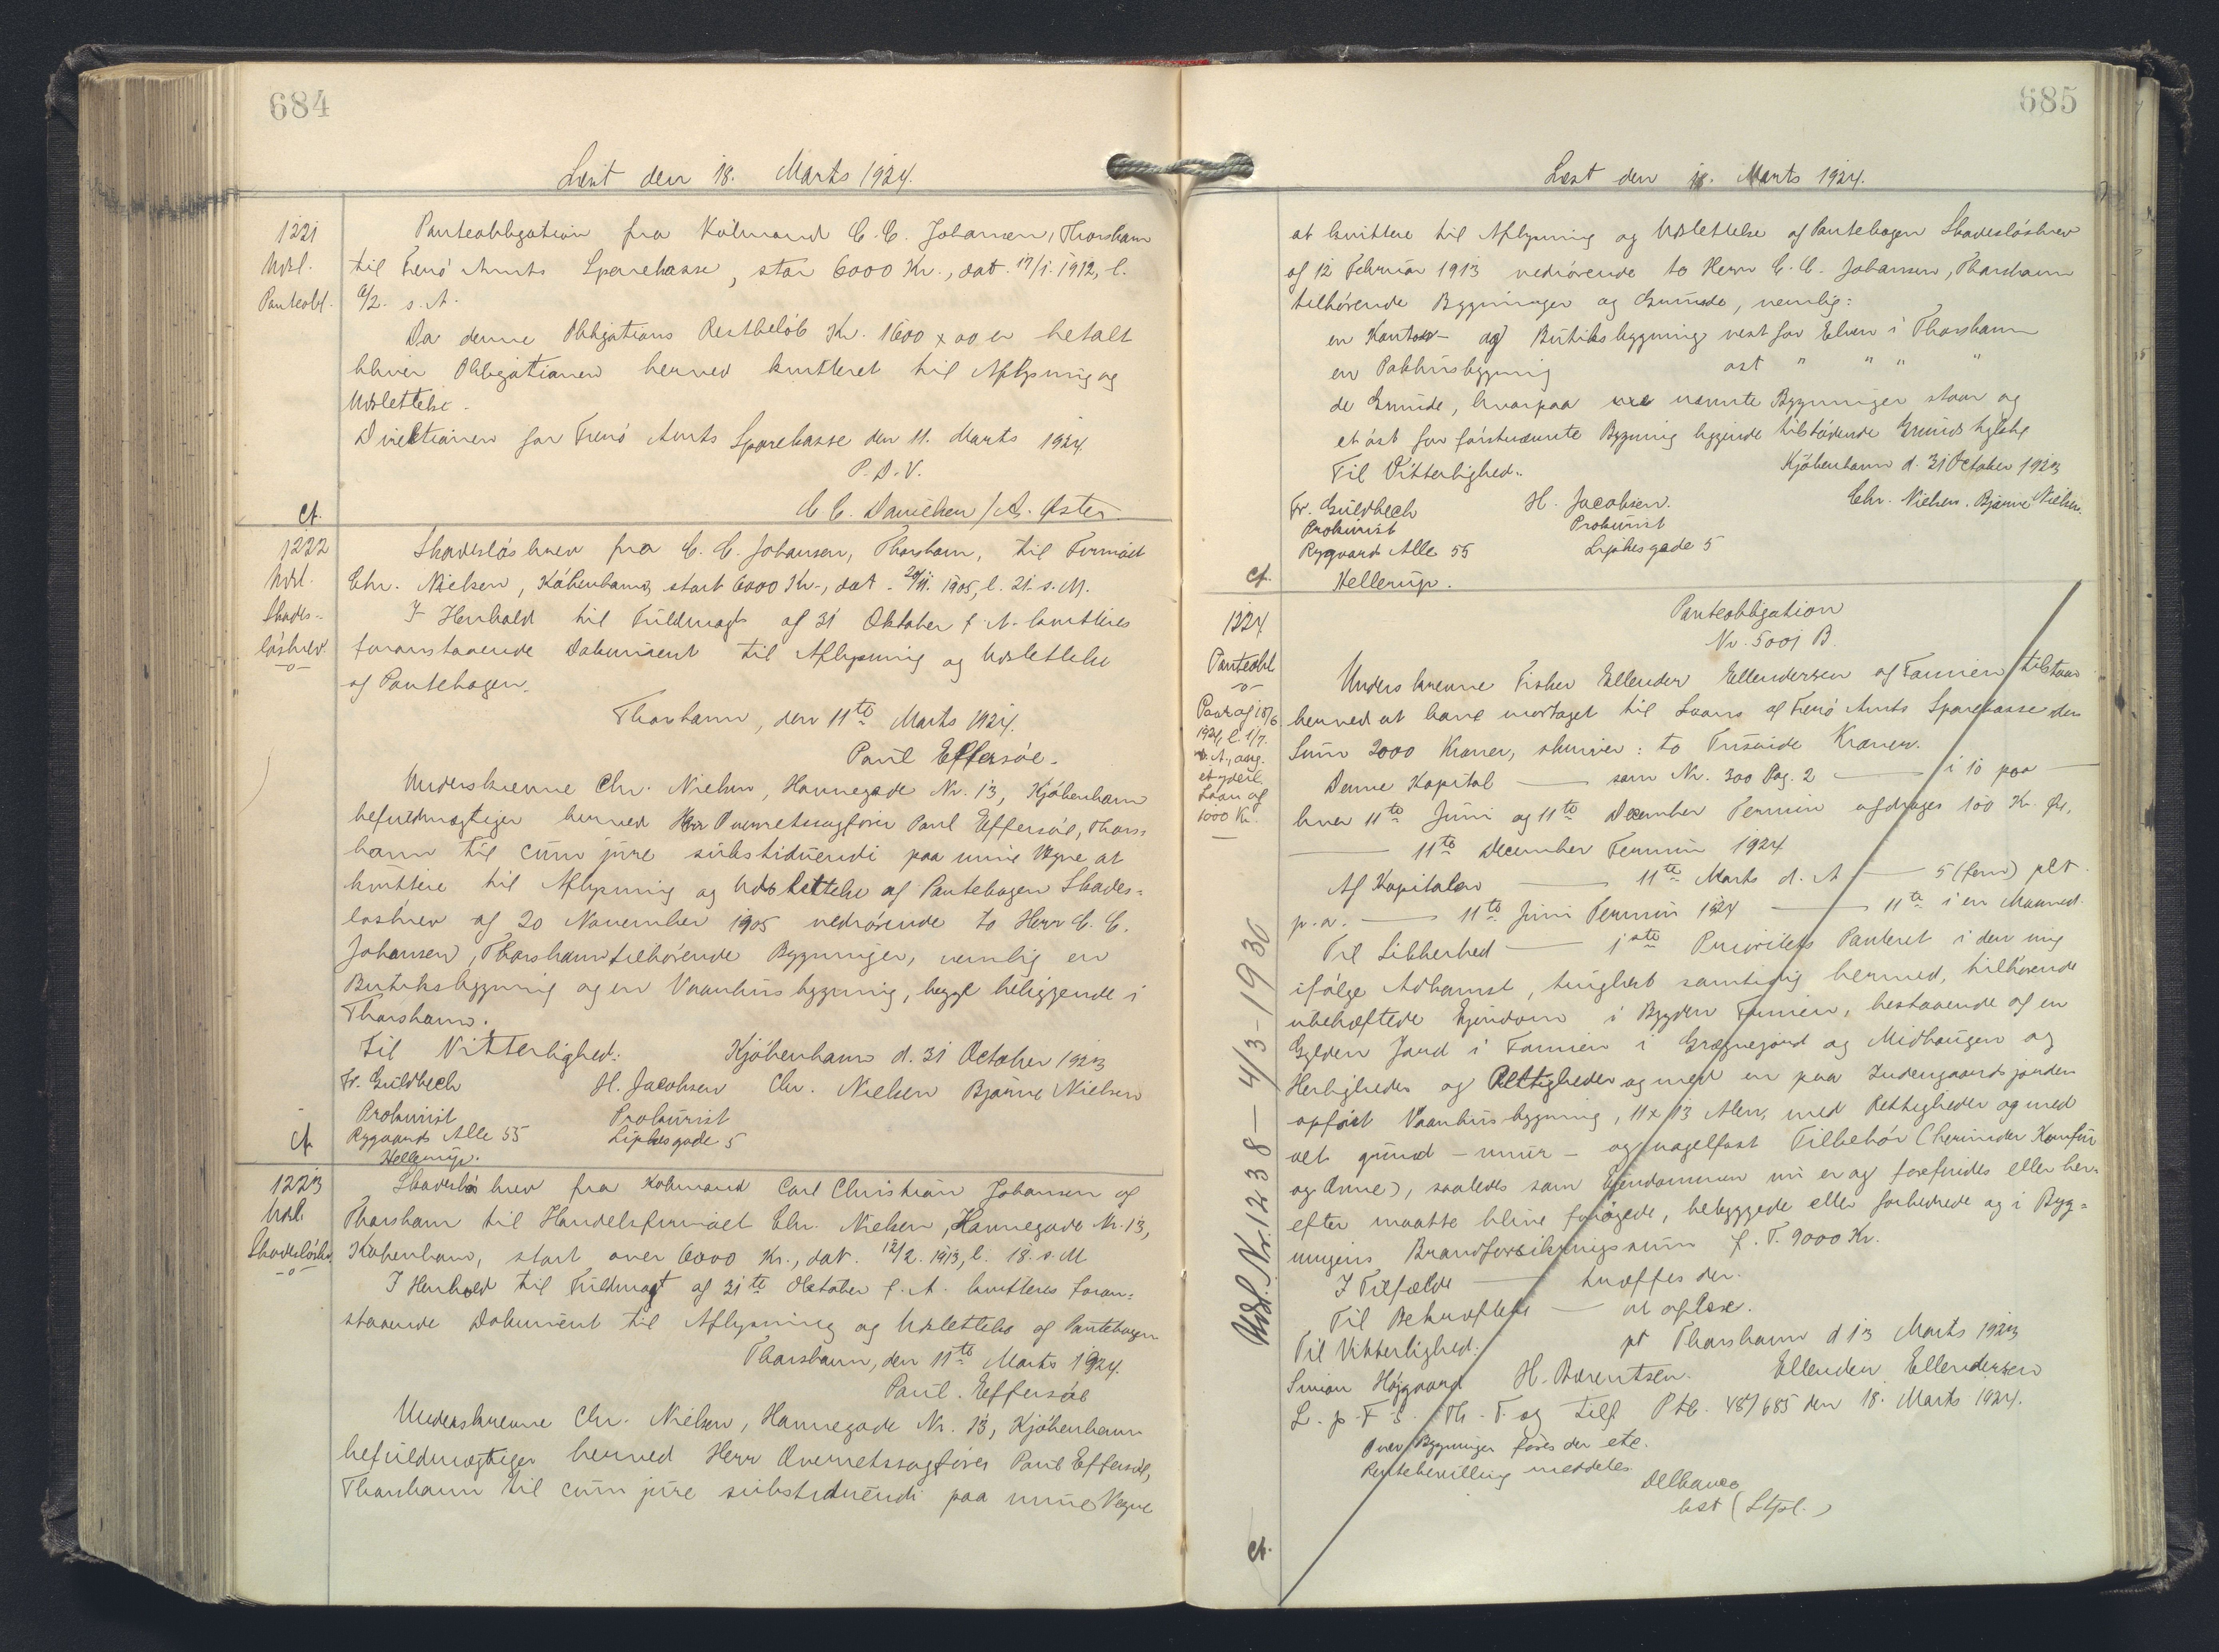 684
Læst den 18. Marts 1924.
1221
Udsl.
Panteobl.
Panteobligation fra Købmand C. C. Johansen, Thorshavn
til Færø Amts Sparekasse, stor 6000 Kr., dat. 17/1. 1912, l.
6/2. s. A.
Da denne Obligations Restbeløb Kr. 1600 x 00 er betalt
bliver Obligationen herved kvitteret til Aflysning og
Udslettelse.
Direktionen for Færø Amts Sparekasse den 11. Marts 1924.
P. D. V.
C C. Danielsen / A. Øster.
ct.
1222
Udsl.
Skades-
løsbrev
Skadesløsbrev fra C. C. Johansen, Thorshavn, til Firmaet
Chr. Nielsen, København, stort 6000 Kr., dat. 20/11. 1905, l. 21. s. M.
I Henhold til Fuldmagt af 31 Oktober f. A. kvitteres
foranstaaende Dokument til Aflysning og Udslettelse
af Pantebogen.
Thorshavn, den 11te Marts 1924.
Paul Effersøe.
Underskrevne Chr. Nielsen, Havnegade Nr. 13, Kjøbenhavn
befuldmægtiger herved Herr Overretssagfører Paul Effersøe, Thors-
havn til cum jure substituendi paa mine Vegne at
kvittere til Aflysning og Udslettelse af Pantebogen Skades-
løsbrev af 20 November 1905 vedrørende to Herr C. C.
Johansen, Thorshavn tilhørende Bygninger, nemlig en
Butiksbygning og en Vaanhusbygning, begge beliggende i
Thorshavn.
Til Vitterlighed: Kjøbenhavn d. 31 October 1923
Fr. Guldbech H. Jacobsen Chr. Nielsen Bjarne Nielsen
Prokurist Prokurist
Rygaards Alle 55 Lipkesgade 5
Hellerup.
ct
1223
Udsl.
Skadesløsbr.
Skadesløsbrev fra Købmand Carl Christian Johansen af
Thorshavn til Handelsfirmaet Chr. Nielsen, Havnegade Nr. 13,
København, stort over 6000 Kr., dat. 12/2. 1913, l. 18. s. M
I Henhold til Fuldmagt af 31te Oktober f. A. kvitteres foran-
staaende Dokument til Aflysning og Udslettelse af Pantebogen
Thorshavn, den 11te Marts 1924.
Paul. Effersøe
Underskrevne Chr. Nielsen, Havnegade Nr. 13, Kjøbenhavn
befuldmægtiger herved Herr Overretssagfører Paul Effersøe,
Thorshavn til cum jure substituendi paa mine Vegne
685
Læst den 18. Marts 1924.
at kvittere til Aflysning og Udslettelse af Pantebogen Skadesløsbrev
af 12 Februar 1913 vedrørende to Herr C. C. Johansen, Thorshavn
tilhørende Bygninger og Grunde, nemlig:
en Kontor- og Butiksbygning vest for Elven i Thorshavn
en Pakhusbygning øst " " " "
de Grunde, hvorpaa nævnte Bygninger staar og
et øst for førstnævnte Bygning liggende tilstødende Grundstykke
Til Vitterlighed: Kjøbenhavn d. 31 October 1923
Fr. Guldbech H. Jacobsen. Chr. Nielsen. Bjarne Nielsen.
Prokurist Prokurist
Rygaards Alle 55 Lipkesgade 5
Hellerup.
ct.
1224
Panteobl
Paategn 18/6
1924, l. 1/7.
s. A., ang.
et yderl.
Laan af
1000 Kr.
Panteobligation
Nr. 5001 B.
Underskrevne Fisker Ellendur Ellendersen af Famien tilstaar
herved at have modtaget til Laans af Færø Amts Sparekasse den
Sum 2000 Kroner, skriver: to Tusinde Kroner.
Denne Kapital — som Nr. 300 Pag. 2 — i 10 paa —
hver 11te Juni og 11te December Termin afdrages 100 Kr. Øre,
— 11te December Termin 1924
Af Kapitalen — 11te Marts d. A — 5 (fem) pCt.
p. a. — 11te Juni Termin 1924 — 11te i en Maaned.
Til Sikkerhed — 1ste Prioritets Panteret i den mig
ifølge Adkomst, tinglæst samtidig hermed, tilhørende
ubehæftede Ejendom i Bygden Famien, bestaaende af en
Gylden Jord i Famien i Grægnejord og Midhaugen og
Herligheder og Rettigheder og med en paa Indengaardsjorden
opført Vaanhusbygning, 11 x 13 Alen, med Rettigheder og med
alt grund - mur - og nagelfast Tilbehør (herunder Komfur
og Ovne), saaledes som Ejendommen nu er og forefindes eller her-
efter maatte blive forøgede, bebyggede eller forbedrede og i Byg-
ningens Brandforsikringssum f. T. 9000 Kr.
I Tilfælde — træffes der.
Til Bekræftelse — at aflæse.
Til Vitterlighed: pt Thorshavn d 13 Marts 1923
Simon Højgaard H. Bærentsen. Ellendur Ellendersen
L. p. F. S. Th. T. og Tilf. Ptb. 487/685 den 18. Marts 1924.
Over Bygninger føres der etc.
Rentebevilling meddeles.
Delbanco
kst (Stpl.)
ct.
Udsl. Nr. 1238 — 4/3 - 1936